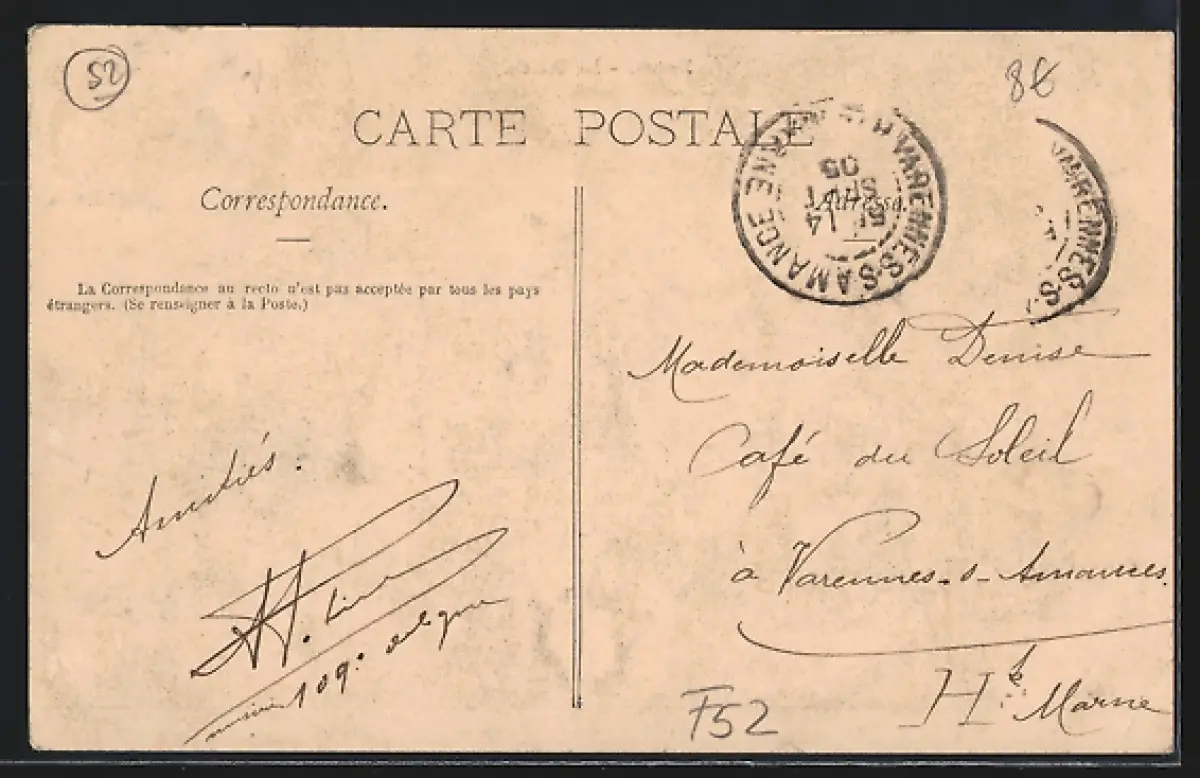 52
8€
CARTE POSTALE
Correspondance.
Adresse.
La Correspondance au recto n'est pas acceptée par tous les pays
étrangers. (Se renseigner à la Poste.)
VARENNES-S-AMANCE
14
SEPT
05
VARENNES-S
Mademoiselle Denise
Café du Soleil
à Varennes-s-Amances
Hte Marne
Amitiés.
109e
F52